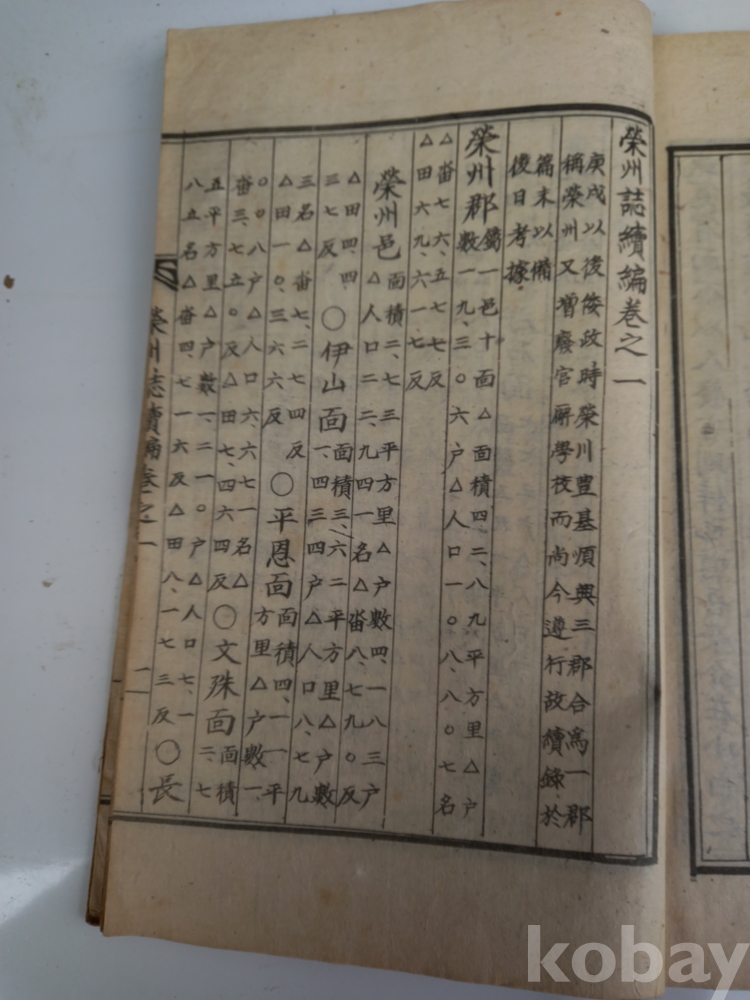 榮州誌續編卷之一
庚戌以後倭政時榮川豊基順興三郡合爲一郡
稱榮州又增廢官廨學校而尚今遵行故續錄於
篇末以備
後日考據
榮州郡
領一邑十面△面積四二、八九平方里△戶
數一九、三〇六戶△人口一〇八、八〇七名
△畓七六、五七七反
△田六九、六一七反
榮州邑
面積二、七三平方里△戶數四、一八三戶
△人口二二、九四一名△畓八、七九〇反
△田四、四
三七反
○伊山面
面積三、六二平方里△戶數
一、四三四戶△人口八、七九
三名△畓七、二七四反
△田一〇、三六六反
○平恩面
面積四、一一平
方里△戶數一、
〇〇八戶△人口六、六七一名△
畓三、七五〇反△田七、四六四反
○文殊面
面積
二、七
五平方里△戶數一、二一〇戶△人口七、一
八五名△畓四、七一六反△田八、一七三反
○長
榮州誌續編卷之一
二
kobay